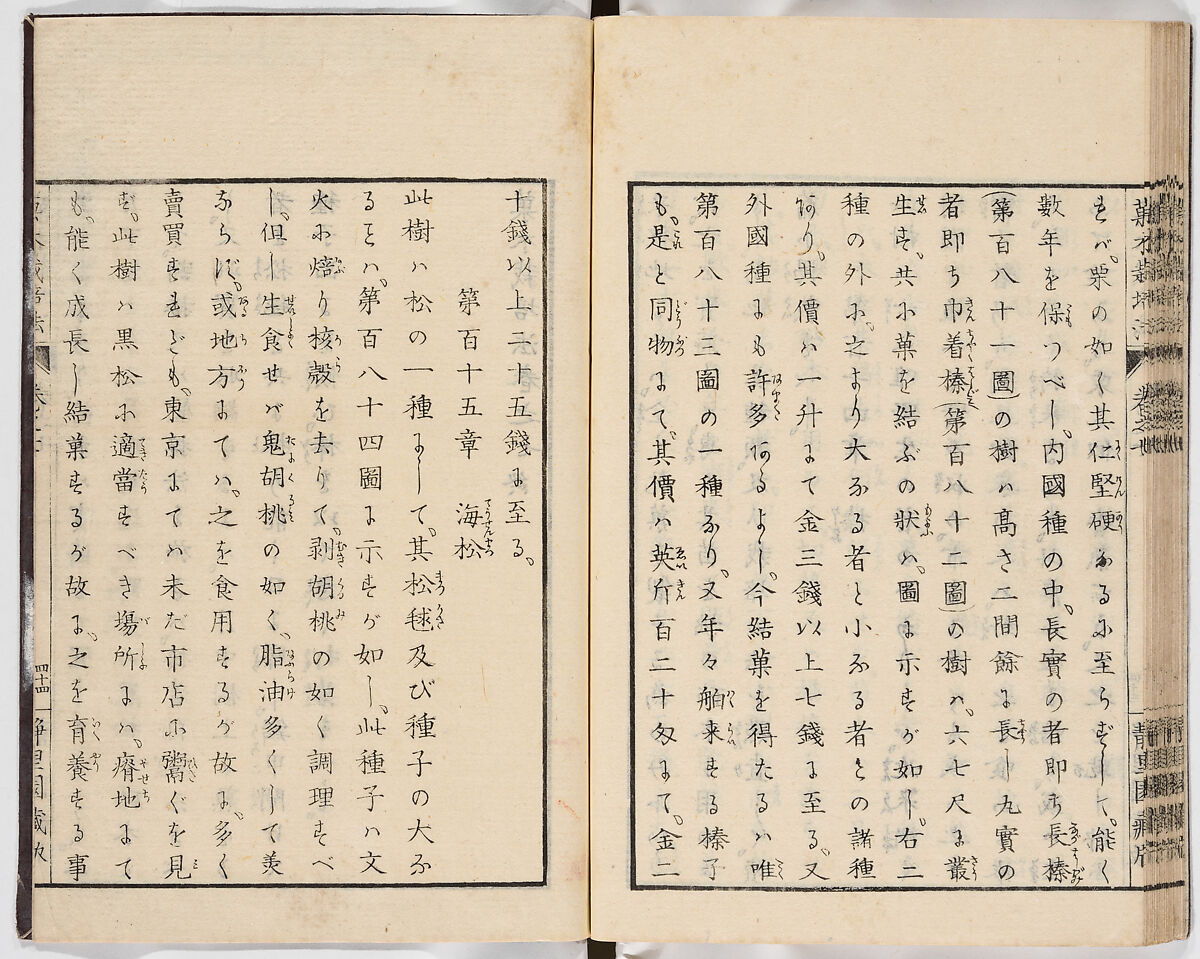 菓木栽培法 卷之七 靜里園藏版
きバ、栗の如く其仁堅硬なるに至らずして、能く
數年を保つべし、内國種の中、長實の者即ち長榛
(第百八十一圖)の樹ハ髙さ二間餘に長し丸實の
者即ち巾着榛(第百八十二圖)の樹ハ、六七尺に叢
生す、共に菓を結ぶの狀ハ、圖に示すが如し、右二
種の外に、之より大なる者と小なる者との諸種
あり、其價ハ一升にて金三錢以上七錢に至る、又
外國種にも許多あるよし、今結菓を得たるハ唯
第百八十三圖の一種なり、又年々舶来する榛子
も、是と同物にて、其價ハ英斤百二十匁にて、金二
十錢以上二十五錢に至る、
第百十五章 海松
此樹ハ松の一種にして、其松毬及び種子の大な
るヿハ、第百八十四圖に示すが如し、此種子ハ文
火に焙り核殼を去りて、剥胡桃の如く調理すべ
し、但し生食せバ鬼胡桃の如く、脂油多くして美
ならず、或地方にてハ、之を食用するが故に、多く
賣買すれども、東京にてハ未だ市店に鬻ぐを見
ず、此樹ハ黒松に適當すべき塲所にハ、瘠地にて
も、能く成長し結菓するが故に、之を育養する事
四十四 靜里園藏版